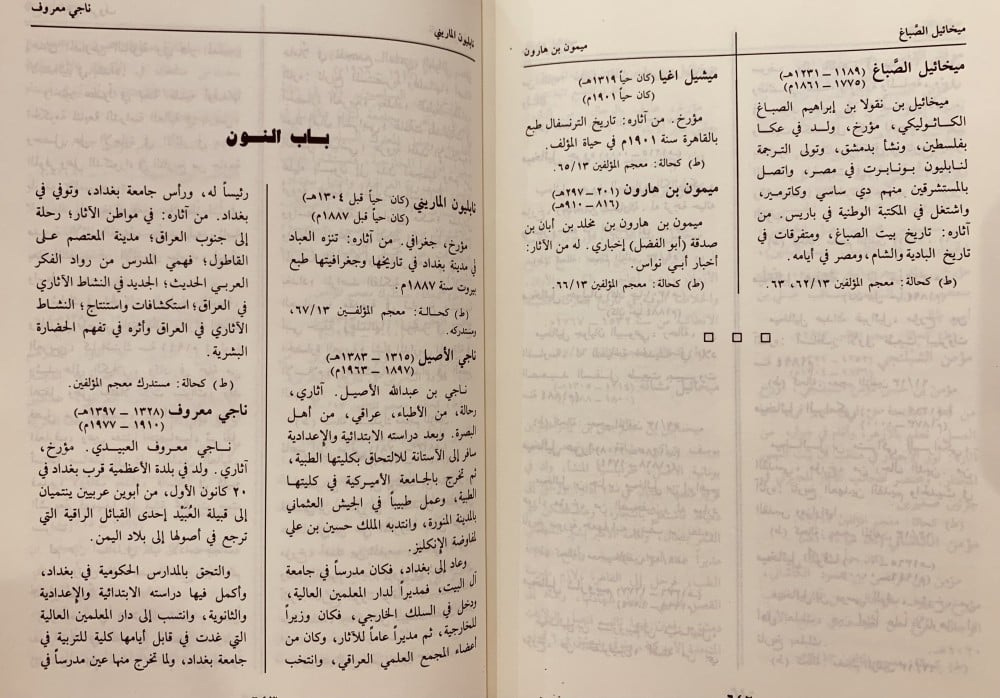 ميخائيل الصَّباغ
ميمون بن هارون
ميخائيل الصَّباغ (١١٨٩ – ١٢٣١هـ)
(١٧٧٥ – ١٨٦١م)
ميخائيل بن نقولا بن إبراهيم الصباغ
الكاثوليكي، مؤرخ، ولد في عكا
بفلسطين، ونشأ بدمشق، وتولى الترجمة
لنابليون بونابرت في مصر، واتصل
بالمستشرقين منهم دي ساسي وكاترمير،
واشتغل في المكتبة الوطنية في باريس. من
آثاره: تاريخ بيت الصباغ، ومتفرقات في
تاريخ البادية والشام، ومصر في أيامه.
(ط) كحالة: معجم المؤلفين ٦٢/١٣، ٦٣.
ميشيل اغيا (كان حياً ١٣١٩هـ)
(كان حياً ١٩٠١م)
مؤرخ. من آثاره: تاريخ الترنسفال طبع
بالقاهرة سنة ١٩٠١م في حياة المؤلف.
(ط) كحالة: معجم المؤلفين ٦٥/١٣.
ميمون بن هارون (٢٠١ – ٢٩٧هـ)
(٨١٦ – ٩١٠هـ)
ميمون بن هارون بن مخلد بن أبان بن
صدقة (أبو الفضل) إخباري. له من الآثار:
أخبار أبي نواس.
(ط) كحالة: معجم المؤلفين ٦٦/١٣.
نابليون الماريني
ناجي معروف
باب النون
نابليون الماريني (كان حياً قبل ١٣٠٤هـ)
(كان حياً قبل ١٨٨٧م)
مؤرخ، جغرافي. من آثاره: تنزه العباد
في مدينة بغداد في تاريخها وجغرافيتها طبع
بيروت سنة ١٨٨٧م.
(ط) كحالة: معجم المؤلفين ٦٧/١٣،
ومستدركه.
ناجي الأصيل (١٣١٥ – ١٣٨٣هـ)
(١٨٩٧ – ١٩٦٣م)
ناجي بن عبدالله الأصيل. آثاري،
رحالة، من الأطباء، عراقي، من أهل
البصرة. وبعد دراسته الابتدائية والإعدادية
سافر إلى الآستانة للالتحاق بكليتها الطبية،
ثم تخرج بالجامعة الأميركية في كليتها
الطبية، وعمل طبيباً في الجيش العثماني
بالمدينة المنورة، وانتدبه الملك حسين بن علي
لمفاوضة الإنكليز.
وعاد إلى بغداد، فكان مدرساً في جامعة
آل البيت، فمديراً لدار المعلمين العالية،
ودخل في السلك الخارجي، فكان وزيراً
للخارجية، ثم مديراً عاماً للآثار، وكان من
أعضاء المجمع العلمي العراقي، وانتخب
رئيساً له، ورأس جامعة بغداد، وتوفي في
بغداد. من آثاره: في مواطن الآثار؛ رحلة
إلى جنوب العراق؛ مدينة المعتصم على
القاطول؛ فهمي المدرس من رواد الفكر
العربي الحديث؛ الجديد في النشاط الآثاري
في العراق؛ استكشافات واستنتاج؛ النشاط
الآثاري في العراق وأثره في تفهم الحضارة
البشرية.
(ط) كحالة: مستدرك معجم المؤلفين.
ناجي معروف (١٣٢٨ – ١٣٩٧هـ)
(١٩١٠ – ١٩٧٧م)
ناجي معروف العبيدي. مؤرخ،
آثاري. ولد في بلدة الأعظمية قرب بغداد في
٢٠ كانون الأول، من أبوين عربيين ينتميان
إلى قبيلة العُبَيْد إحدى القبائل الراقية التي
ترجع في أصولها إلى بلاد اليمن.
والتحق بالمدارس الحكومية في بغداد،
وأكمل فيها دراسته الابتدائية والإعدادية
والثانوية، وانتسب إلى دار المعلمين العالية
التي غدت في قابل أيامها كلية للتربية في
جامعة بغداد، ولما تخرج منها عين مدرساً في